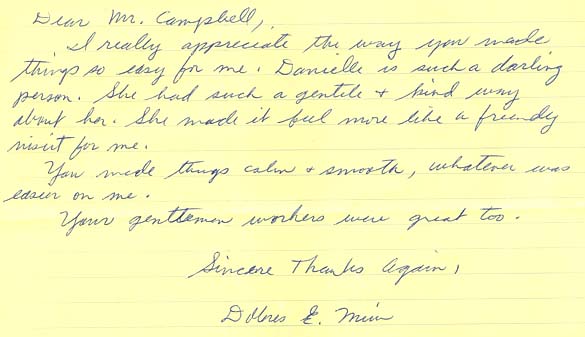 Dear Mr. Campbell,
I really appreciate the way you made
things so easy for me. Danielle is such a darling
person. She had such a gentile + kind way
about her. She made it feel more like a friendly
visit for me.
You made things calm + smooth, whatever was
easier on me.
Your gentlemen workers were great too.
Sincere Thanks Again,
Dolores E.